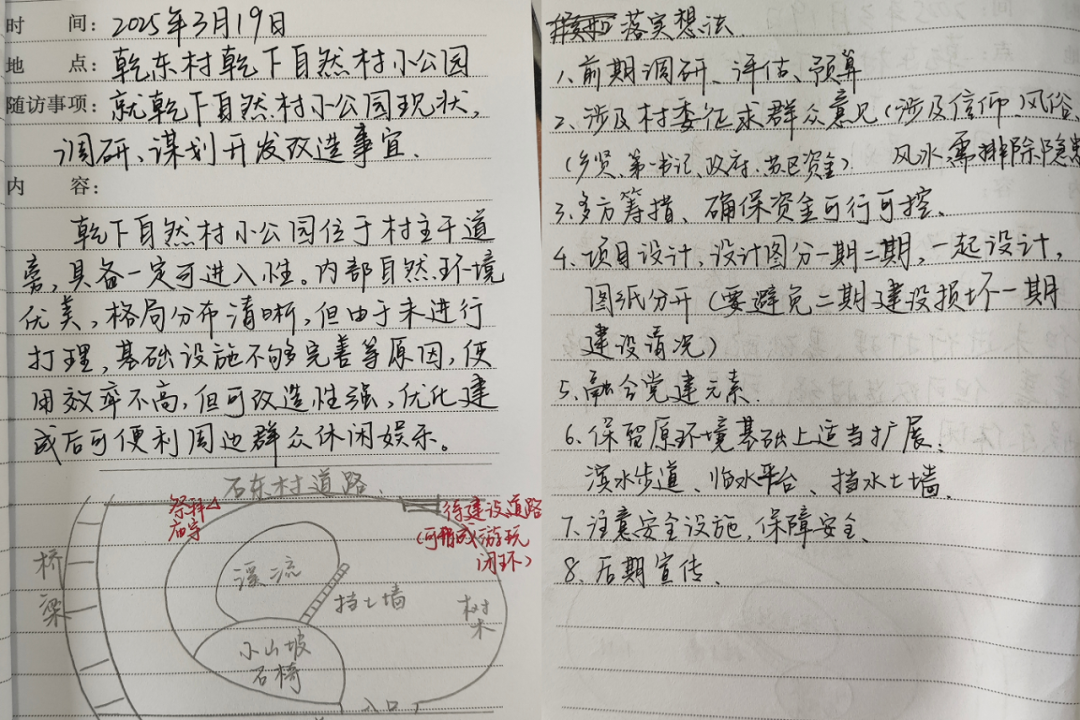 时 间：2025年3月19日
地 点：乾东村乾下自然村小公园
随访事项：就乾下自然村小公园现状，
调研、谋划开发改造事宜。
内 容：
乾下自然村小公园位于村主干道
旁，具备一定可进入性。内部自然环境
优美，格局分布清晰，但由于未进行
打理，基础设施不够完善等原因，使
用效率不高，但可改造性强，优化建
成后可便利周边群众休闲娱乐。
石东村道路
祭拜
庙宇
待建设道路
（可形成游玩
闭环）
桥
梁
溪流
挡土墙
树
木
小山坡
石椅
入口
落实想法
1、前期调研、评估、预算
2、涉及村委征求群众意见（涉及信仰、风俗、
（乡贤、第一书记、政府、苏区资金） 风水需排除隐患
3、多方筹措、确保资金可行可控、
4、项目设计，设计图分一期二期，一起设计，
图纸分开（要避免二期建设损坏一期
建设情况）
5、融合党建元素.
6、保留原环境基础上适当扩展、
滨水步道、临水平台、挡水土墙、
7、注意安全设施，保障安全、
8、后期宣传、